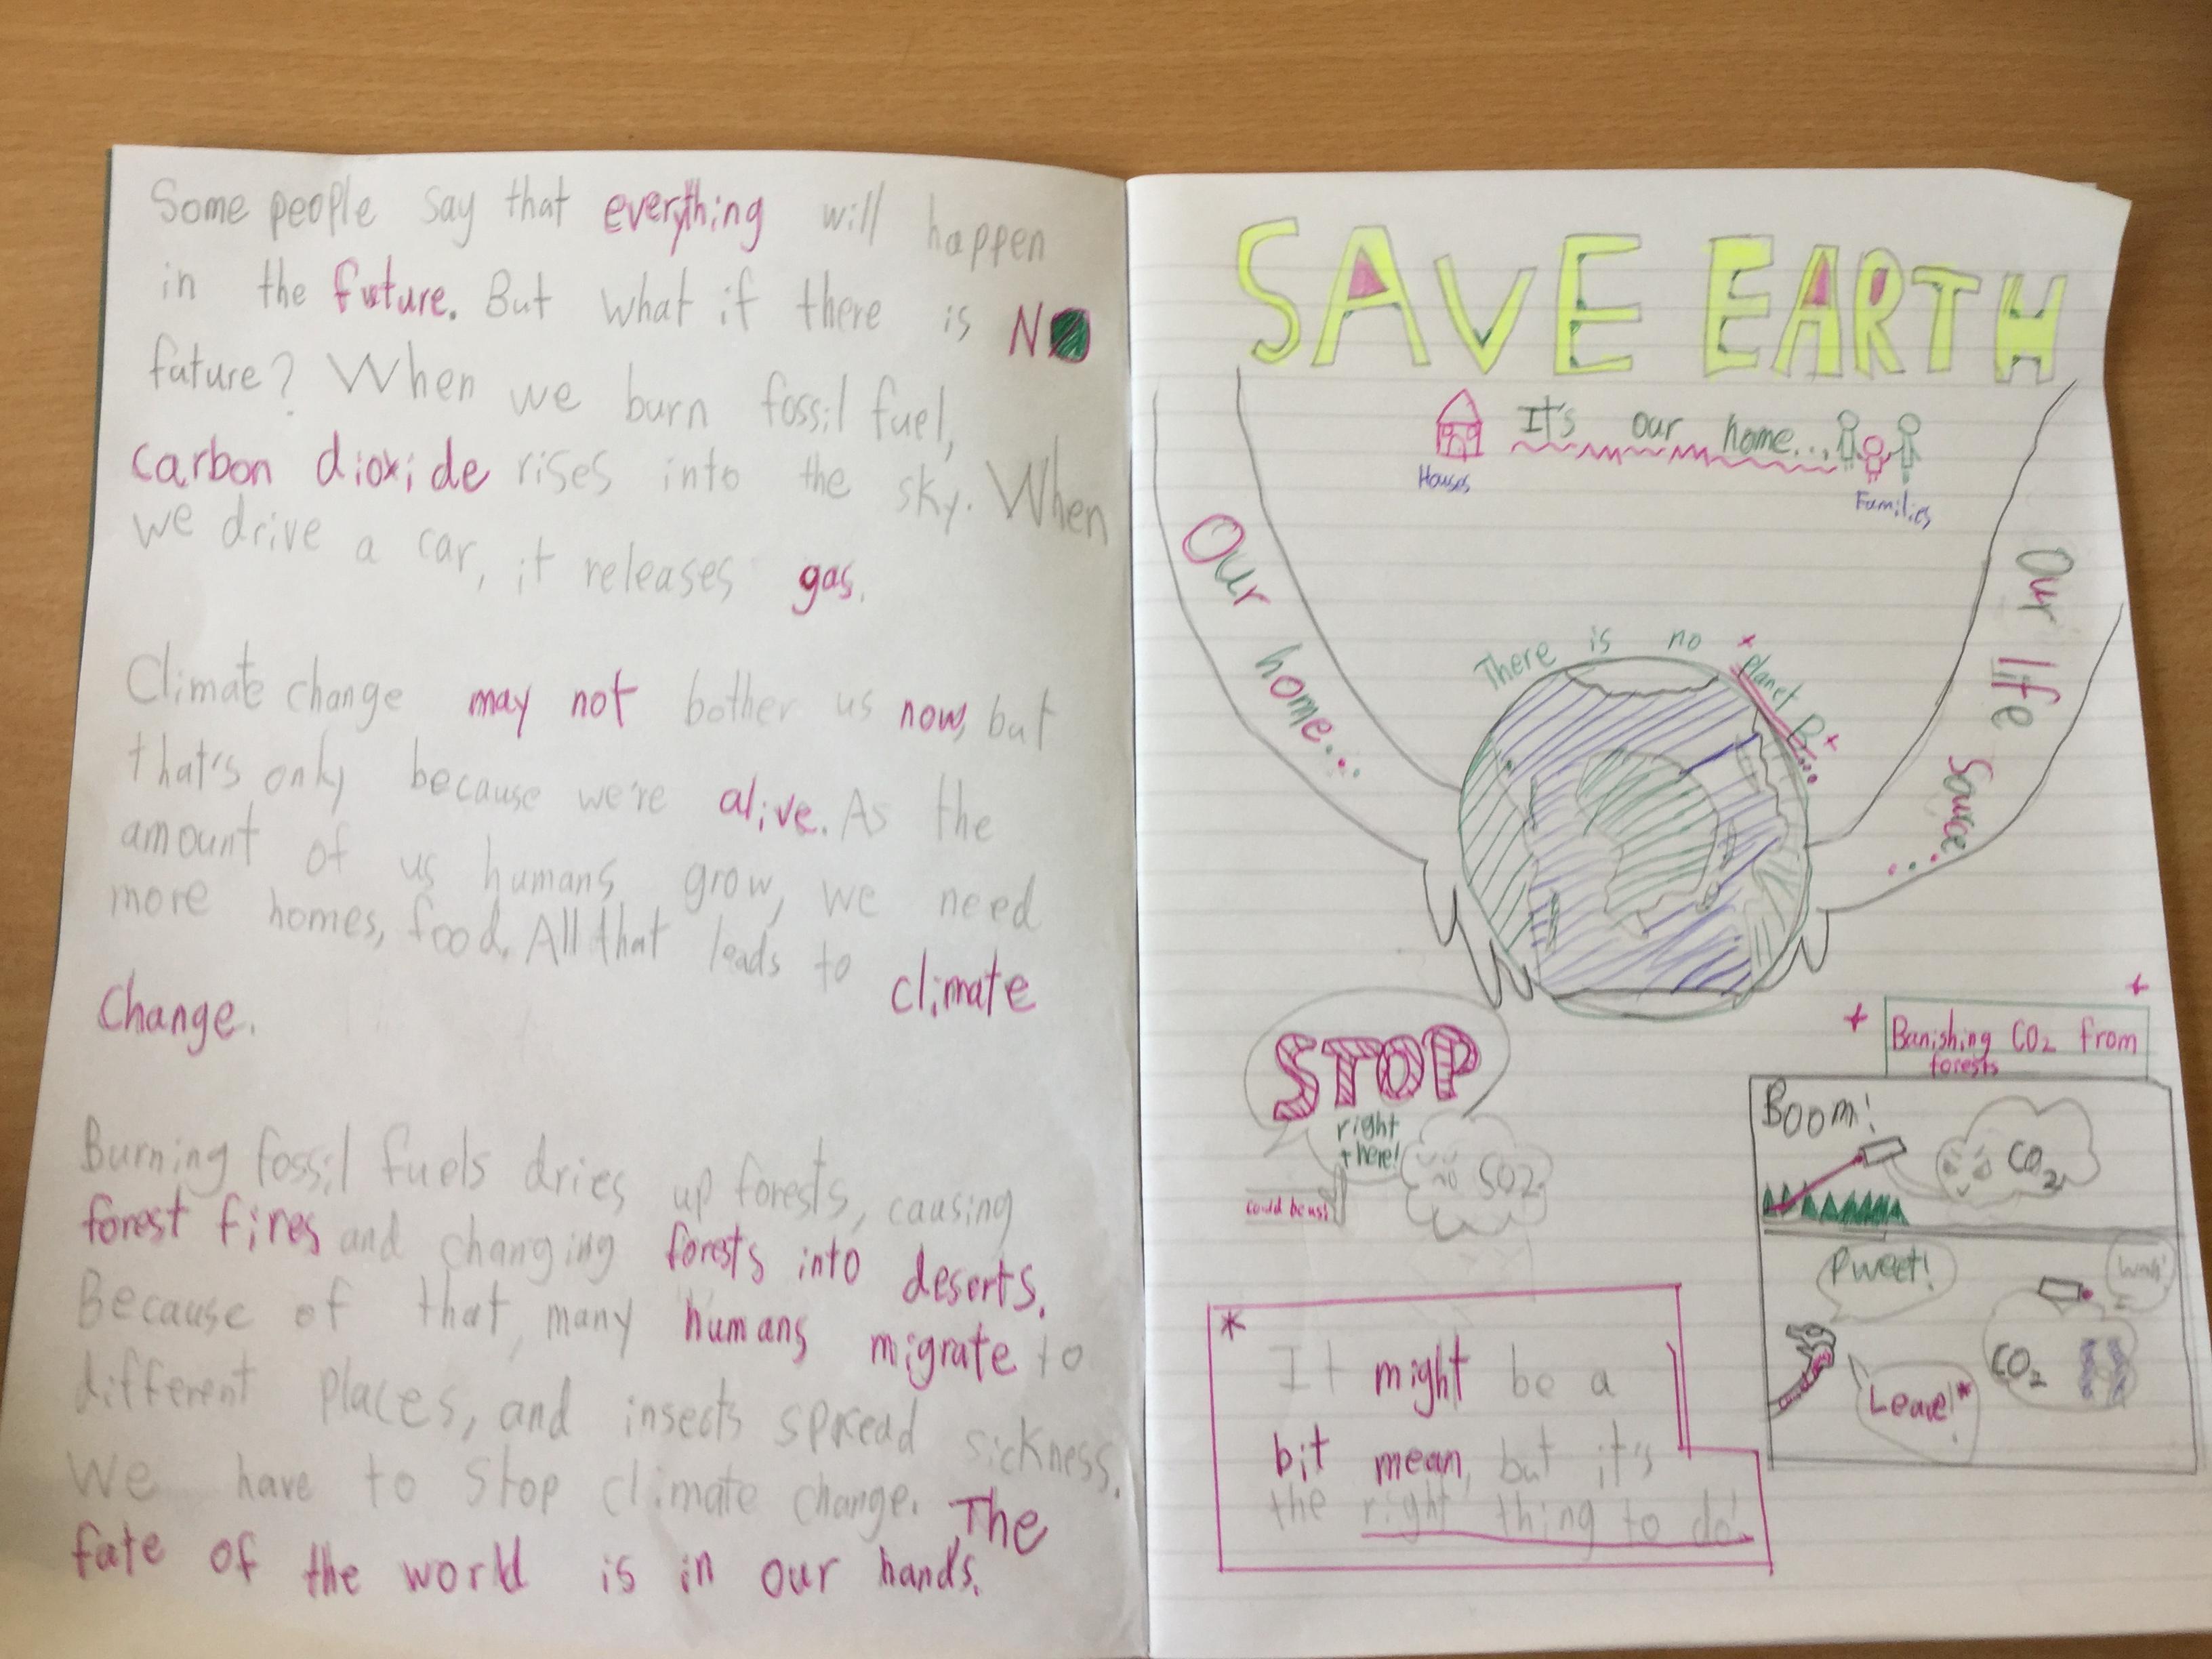 Some people say that everything will happen
in the future. But what if there is NO
future? When we burn fossil fuel,
carbon dioxide rises into the sky. When
we drive a car, it releases gas.
Climate change may not bother us now, but
that's only because we're alive. As the
amount of us humans grow, we need
more homes, food. All that leads to climate
change.
Burning fossil fuels dries up forests, causing
forest fires and changing forests into deserts.
Because of that, many humans migrate to
different places, and insects spread sickness.
We have to stop climate change. The
fate of the world is in our hands.
SAVE EARTH
It's our home...
Houses
Families
Our home...
Our life source...
There is no planet B...
STOP
right
there!
could be us!
CO2
Banishing CO2 from
forests
Boom!
CO2
Pweet!
CO2
Leave!*
* It might be a
bit mean, but it's
the right thing to do!